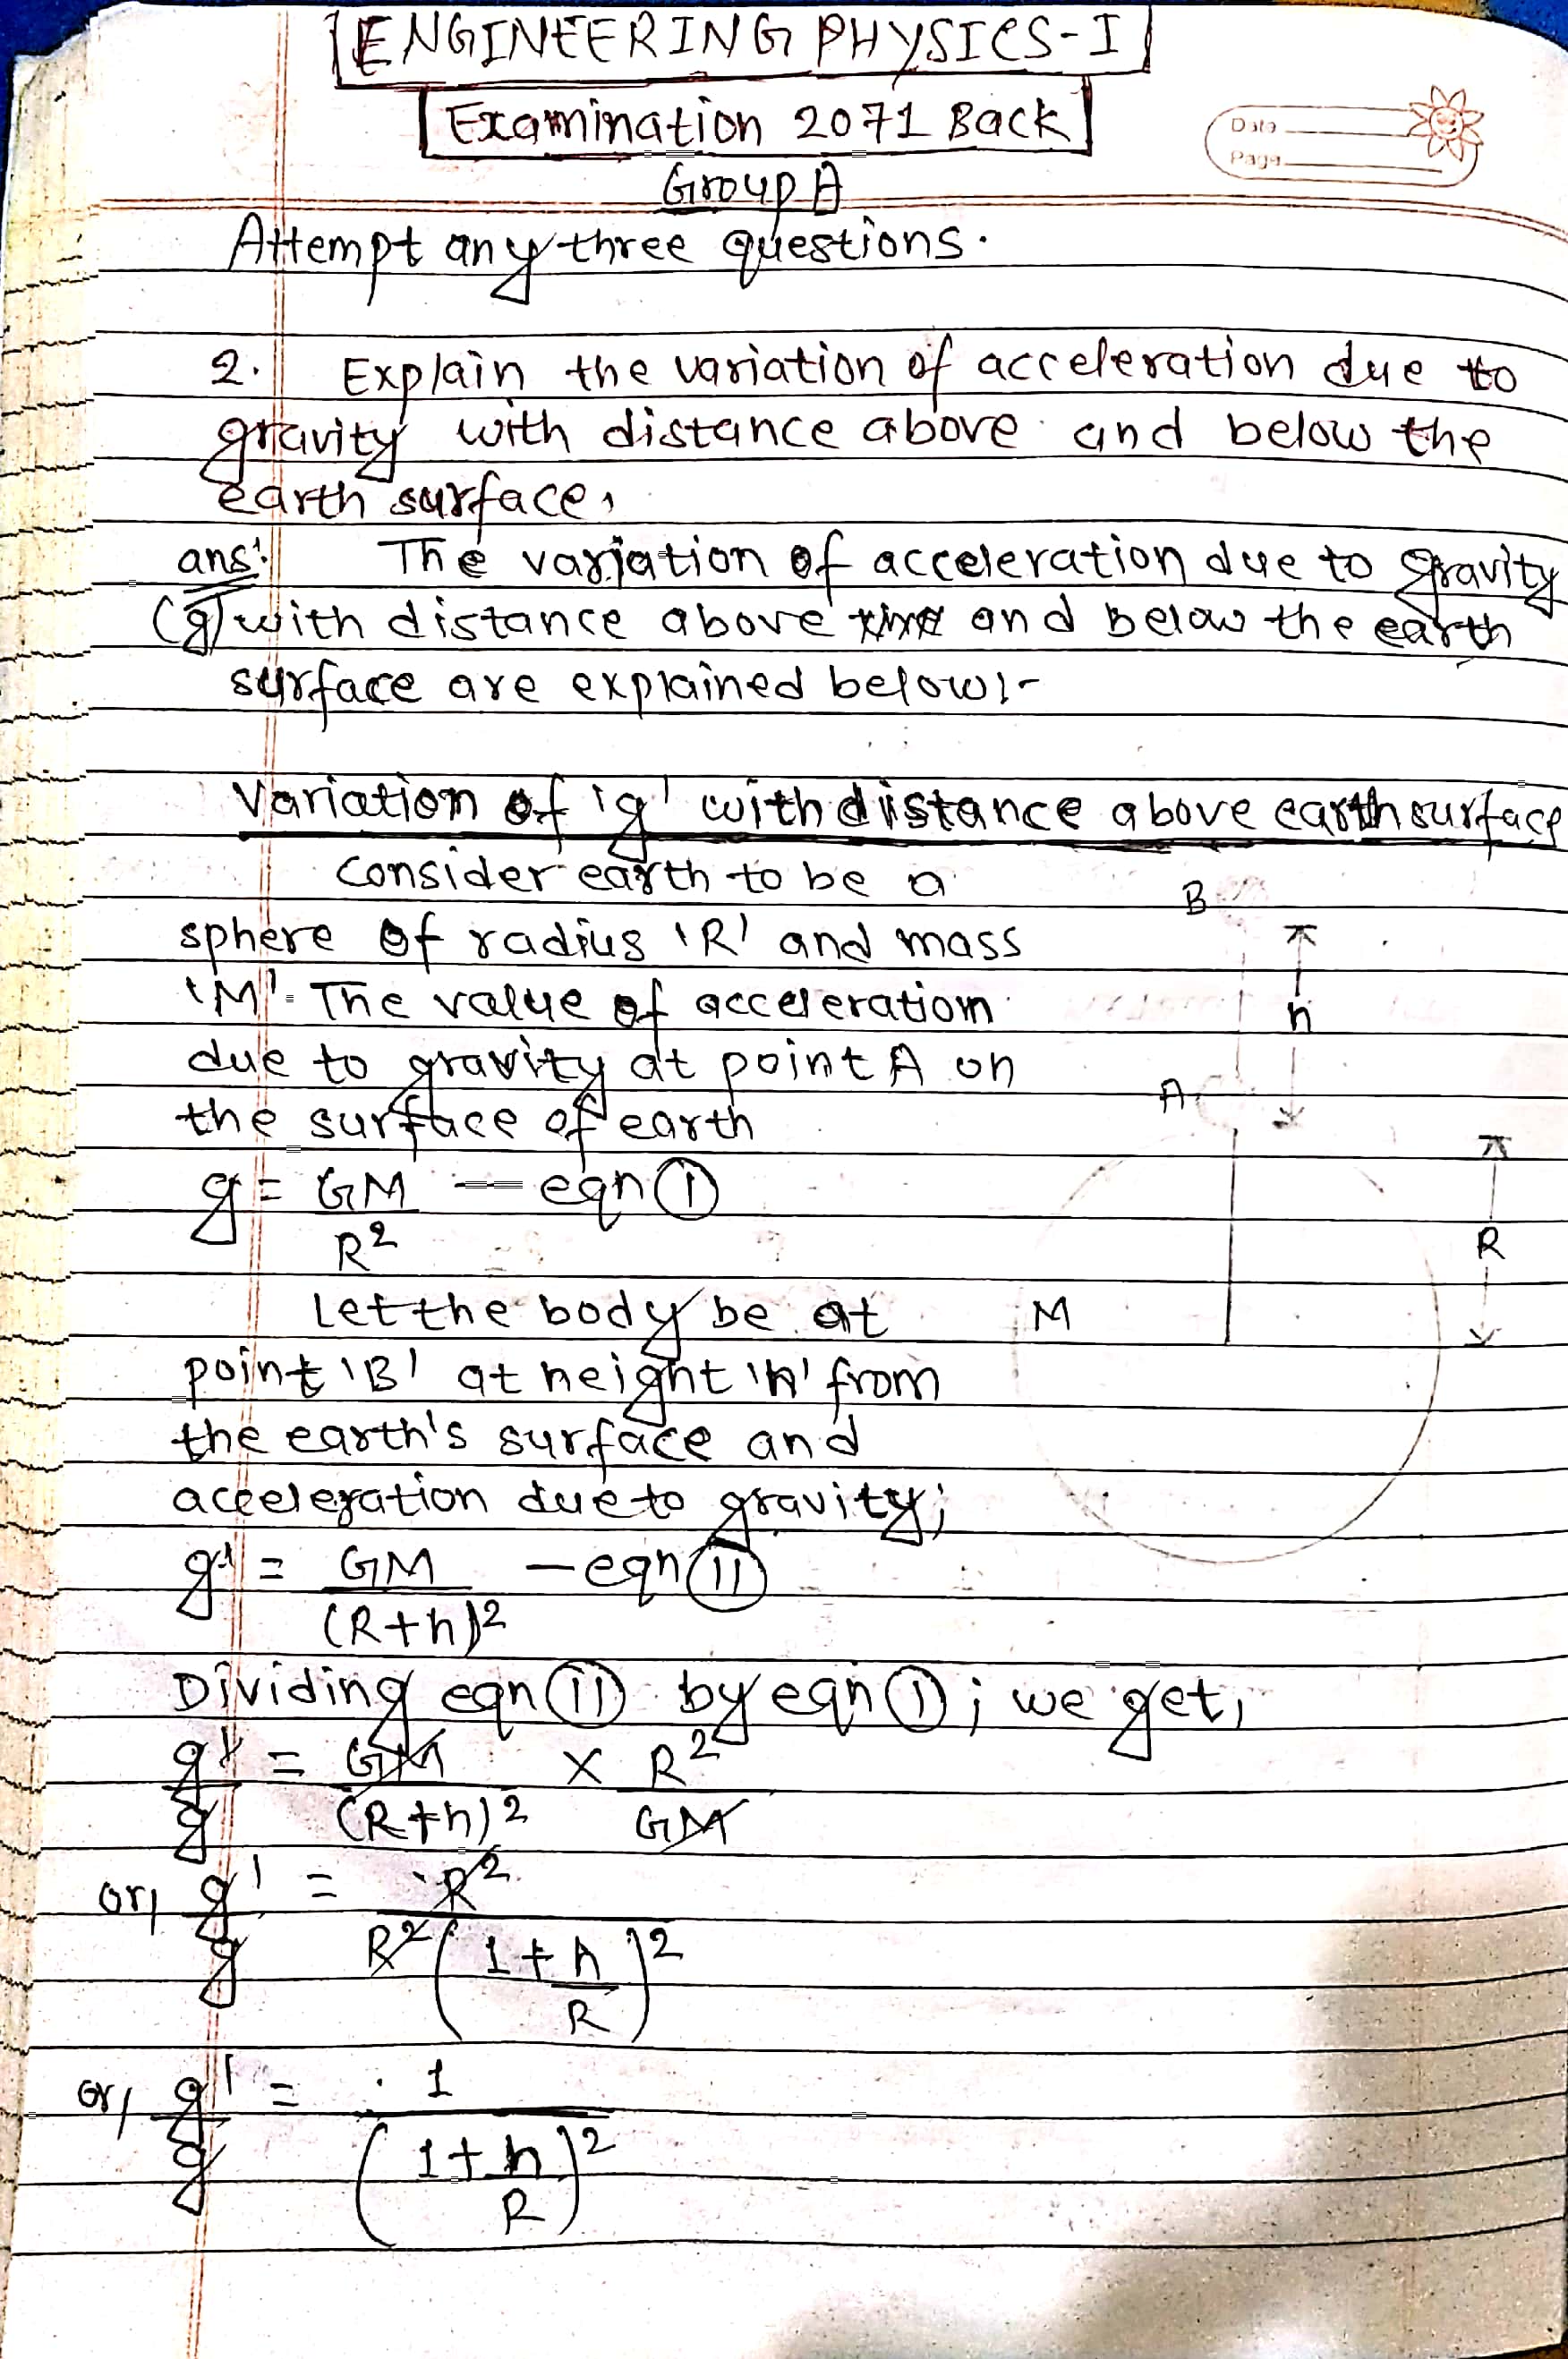 ENGINEERING PHYSICS-I
Examination 2071 Back
Date
Page
Group A
Attempt any three questions.
2. Explain the variation of acceleration due to
gravity with distance above and below the
earth surface.
ans: The variation of acceleration due to gravity
(g) with distance above and below the earth
surface are explained below:-
Variation of 'g' with distance above earth surface
consider earth to be a
sphere of radius 'R' and mass
'M'. The value of acceleration
due to gravity at point A on
the surface of earth
g = GM — eqn (I)
R²
Let the body be at
point 'B' at height 'h' from
the earth's surface and
acceleration due to gravity;
g' = GM — eqn (II)
(R+h)²
Dividing eqn (II) by eqn (I); we get,
g' = GM × R²
g (R+h)² GM
or, g' = R²
g R² (1+h/R)²
or, g' = 1
g (1+h/R)²
B
h
A
R
M